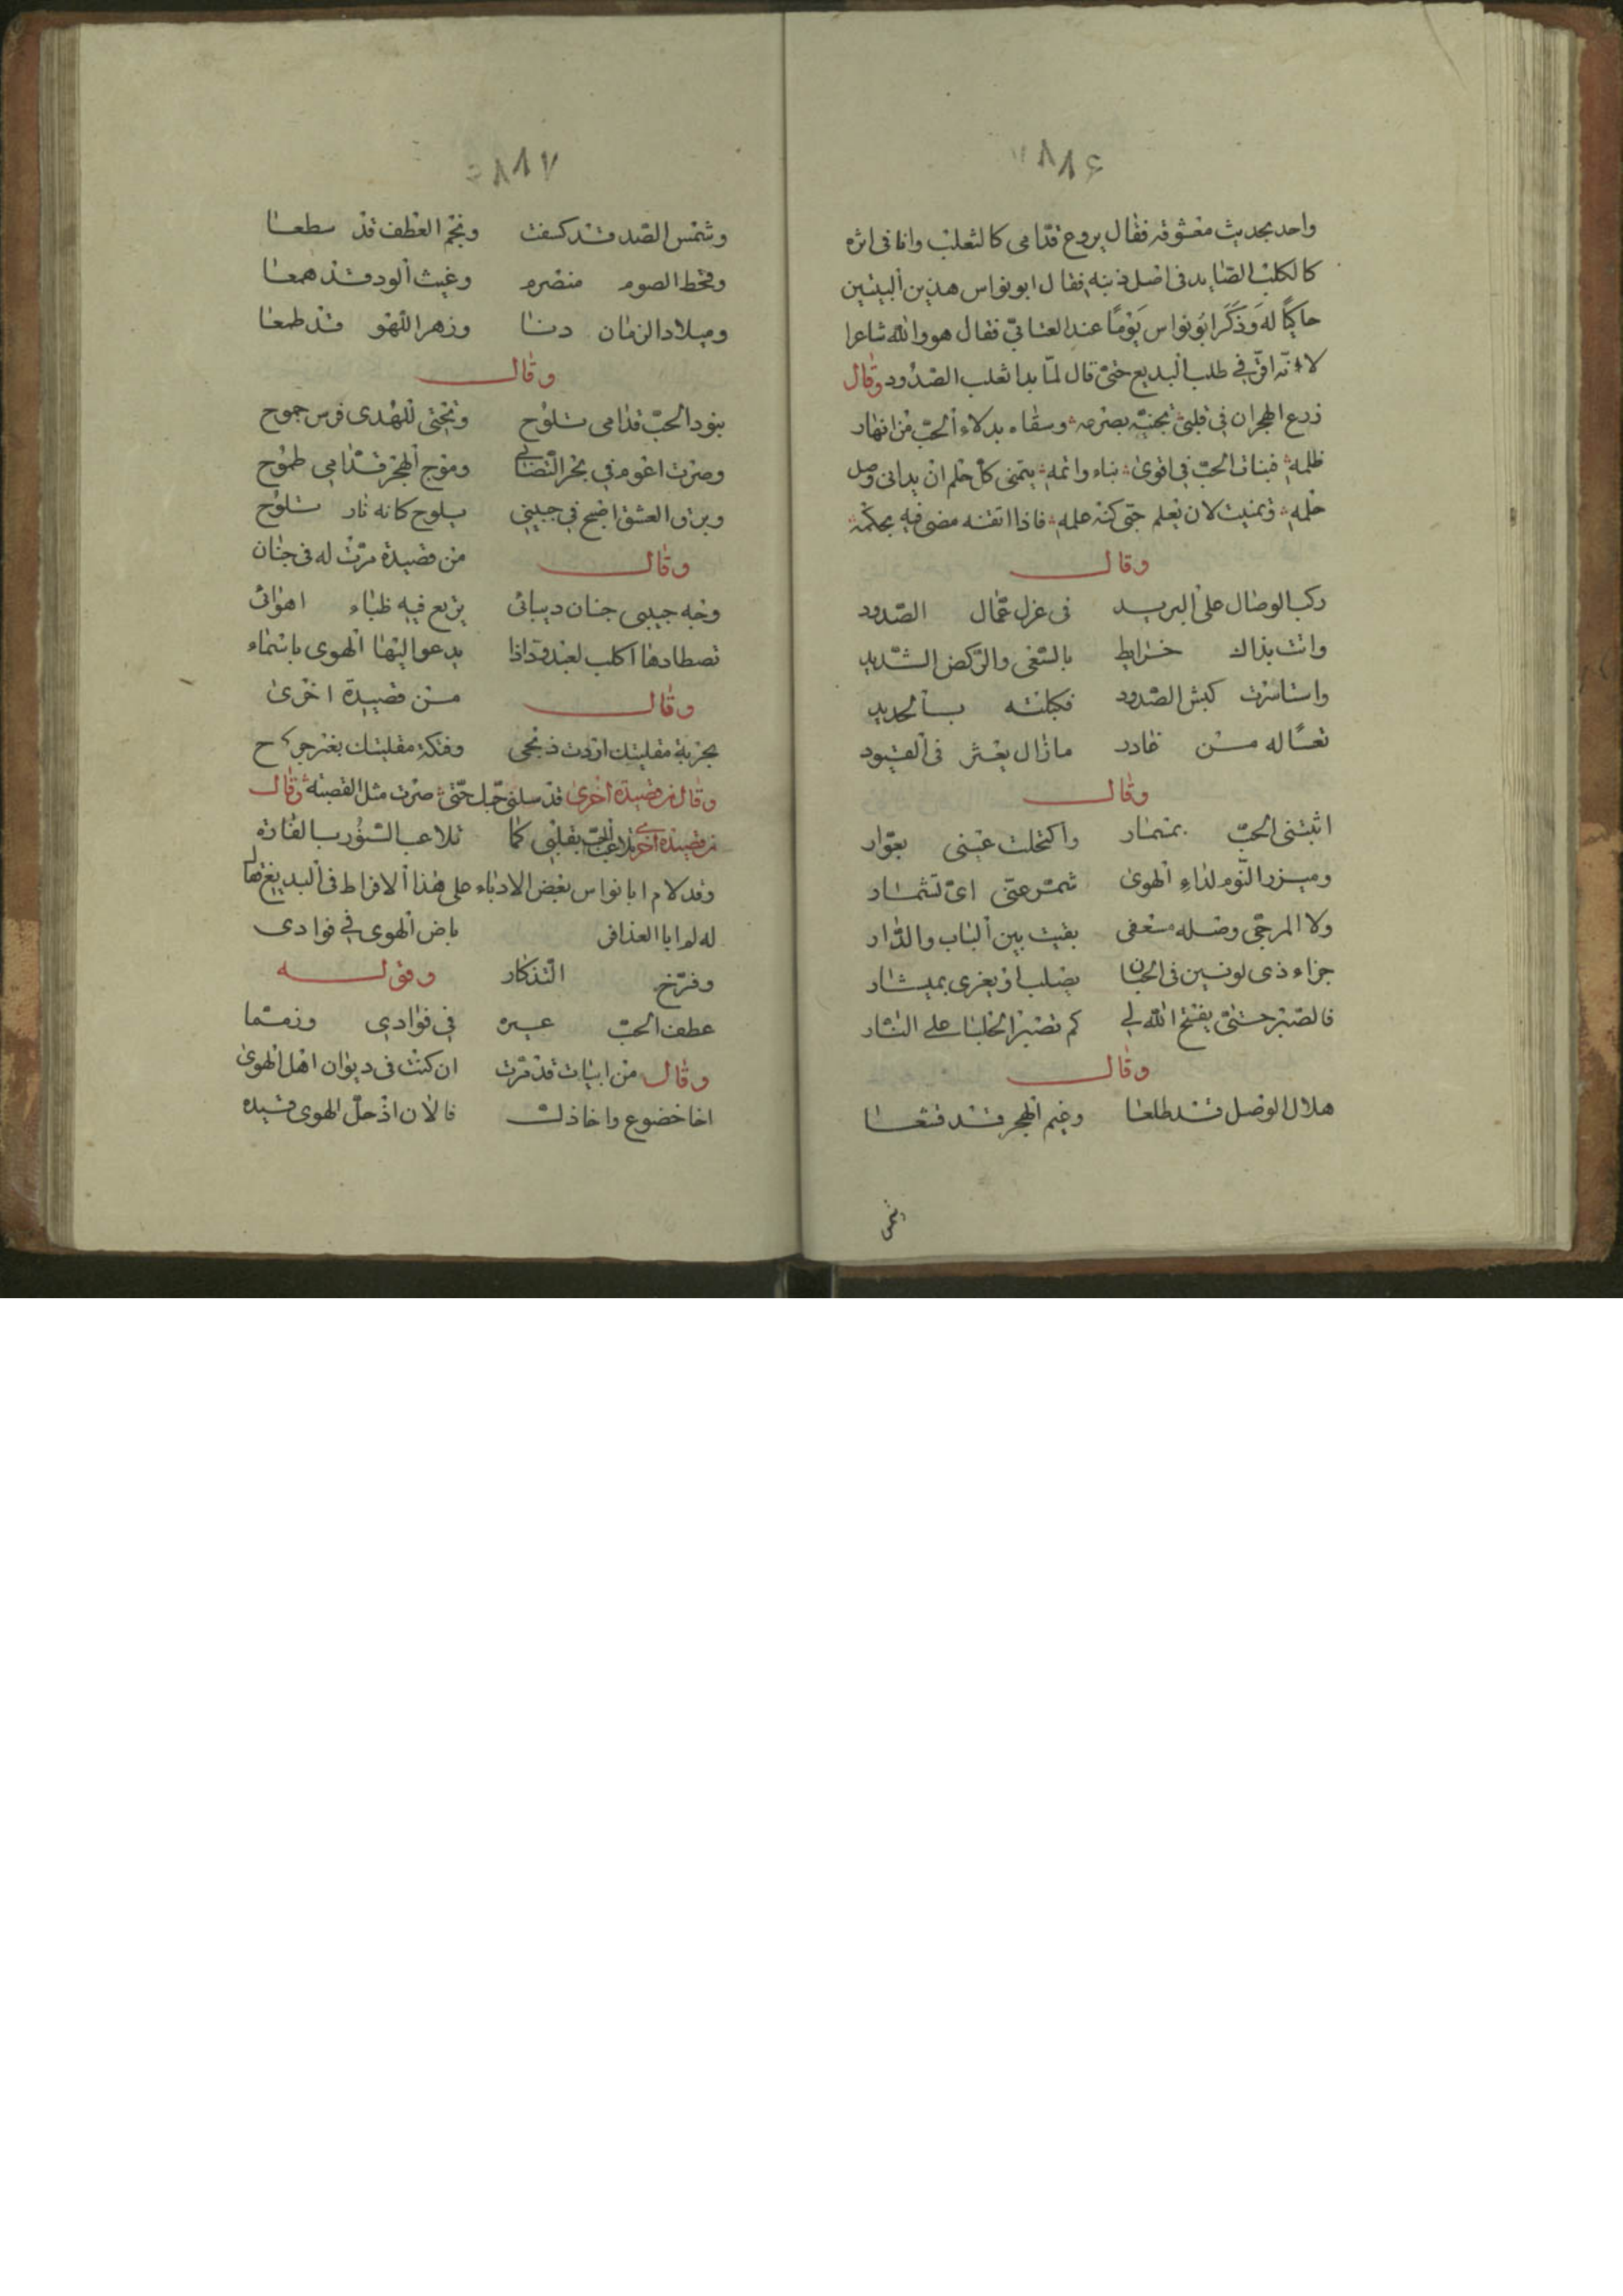 ٨٨٦
واحد بحديث معشوقه فقال يروع قدامى كالثعلب وانا فى اثره
كالكلب الصايد فى اصل ذنبه فقال ابو نواس هذين البيتين
حاكيًا له وَذَكَرَ ابُو نواس يَوْمًا عند العتابىّ فقال هو والله شاعرا
لا انّه افى فى طلب البديع حتىّ قال لمّا بدا ثعلب الصدُود وقال
زرع الهجران فى قلبى بصرمه وسقاه بدلاء الحبّ من انهار
ظلمه فبنات الحبّ فى اقوى بناء واتمه يتمنى كل حلم ان يدانى وصل
حلمه وتمنيت لان يعلم حبّى كنه علمه فاذا اتقنه مضى فيه بحكمه
وقال
ركب الوصال على البريد فى عزل عمّال الصّدود
واتت بذاك خرايط بالسّعى والرّكض الشّديد
واستاسرت كبش الصّدود فكبلته بالحديد
تعسًا له من غادر مازال يعثر فى القيود
وقال
اثبتنى الحبّ بمسمار واكتحلت عينى بعوّار
وميزر النّوم لداءِ الهوى شمّر عنّى اىّ تشمار
ولا المرجّى وصله مسعفى بقيت بين الباب والدّار
جزاء ذى لونين فى الحبّ ان يصلب او يغرى بميشار
فالصّبر حتىّ يفتح الله لى كم تصبر الحلبات على النّار
وقال
هلال الوصل قد طلعا وغيم الهجر قد قشعا
شمس
٨٨٧
وشمس الصّد قد كسفت ونجم العطف قد سطعا
وقحط الصوم منصرم وغيث الود قد همعا
وميلاد الزمان دنا وزهر اللّهو قد طلعا
وقال
بنود الحبّ قدامى تلوح وتحتى للهدى فرس جموح
وصرت اعوم فى بحر التّصابى وموج الهجر قدّامى طموح
وبرق العشق اصبح فى جبينى يلوح كانه نار تلوح
وقال من قصيدة مرّت له فى جنان
وجه حبيبى جنان ديباتى يرتع فيه ظباء اهوائى
تصطادها اكلب لعبدة اذا يدعو اليها الهوى باسماء
وقال من قصيدة اخرى
بحربة مقليتك اردت ذبحى وفتكة مقليتك بغير جرح
وقال من قصيدة اخرى قد سلنى حبّك حتّى صرت مثل القصبه وقال
من قصيدة اخرى تلاعب الحبّ بقلبى كما تلاعب السّنّور بالفاره
وقد لام ابا نواس بعض الادباء على هذا الافراط فى البديع فقال
له لم ابا العذافر باض الهوى فى فوادى
وفرّخ التّذكار وقوله
عطف الحبّ عيره فى فوادى وزمّما
وقال من ابيات قد مرّت ان كنت فى ديوان اهل الهوى
اخا خضوع واخا ذلّ فالان اذ حلّ الهوى قيده